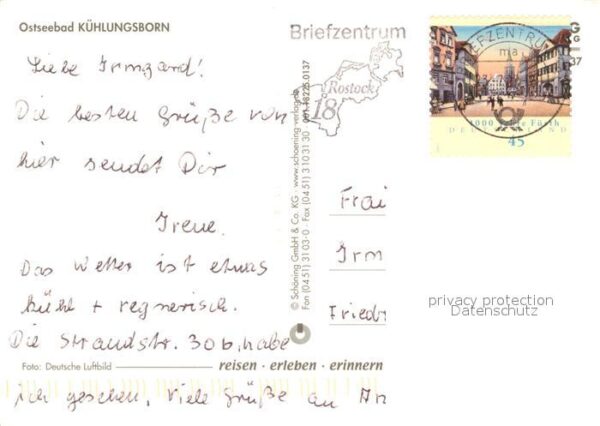 Ostseebad KÜHLUNGSBORN
Liebe Irmgard!
Die besten Grüße von
hier sendet Dir
Irene.
Das Wetter ist etwas
kühl + regnerisch.
Die Strandstr. 30 b, habe
ich gesehen, Viele Grüße an
Foto: Deutsche Luftbild
reisen · erleben · erinnern
© Schöning GmbH & Co. KG · www.schoening-verlag.de
Fon (04 51) 31 03-0 · Fax (04 51) 3 10 31 30
Briefzentrum
Rostock
18
BRIEFZENTRUM
1000 Jahre Fürth
DEUTSCHLAND
45
Frau
Irm
Friedr
privacy protection
Datenschutz